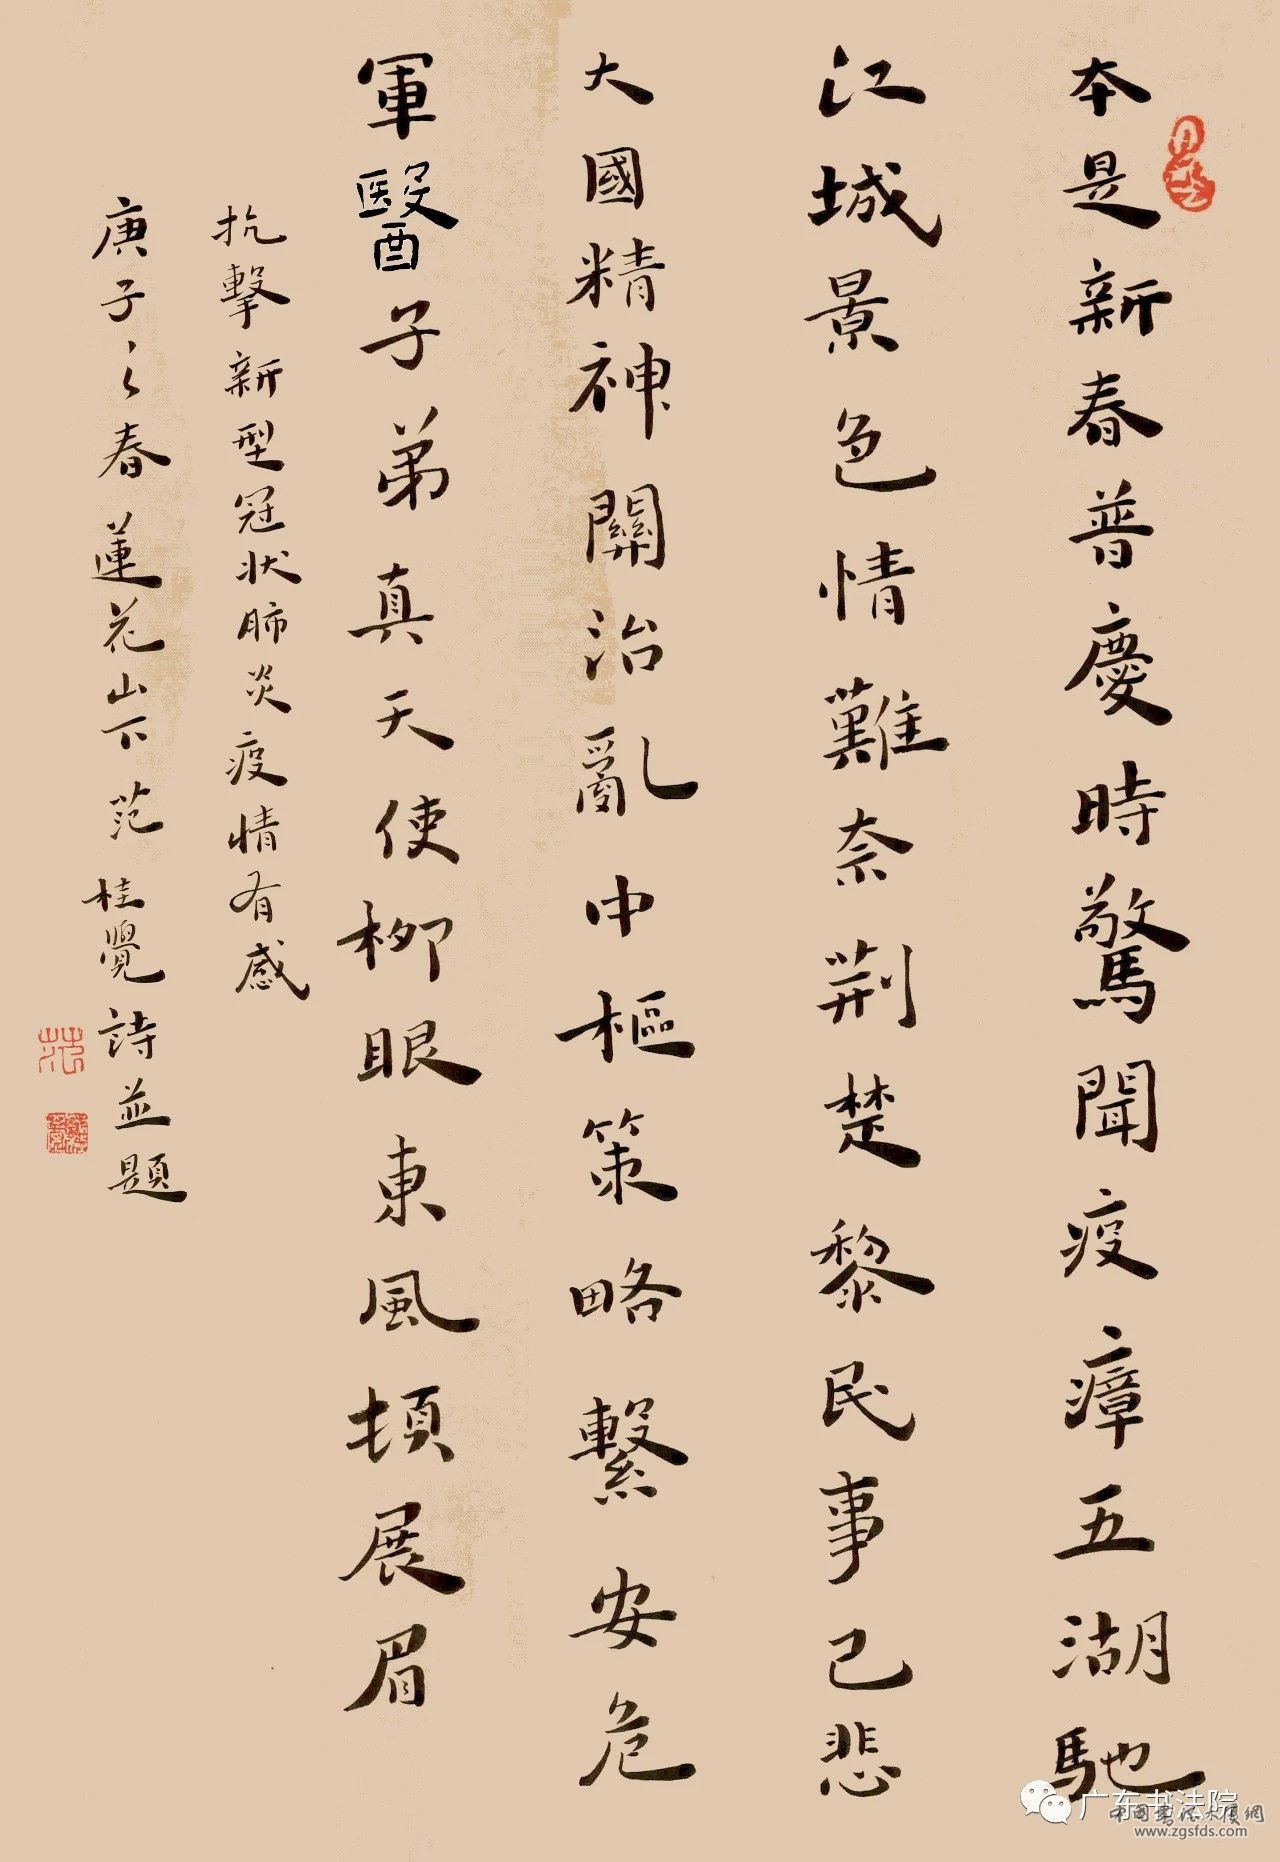 本是新春普慶時驚聞疫瘴五湖馳
江城景色情難奈荆楚黎民事已悲
大國精神關治亂中樞策略繫安危
軍醫子弟真天使柳眼東風頓展眉
抗擊新型冠状肺炎疫情有感
庚子之春蓮花山下范桂覺詩並題
范
广东书法院
www.zgsfds.com